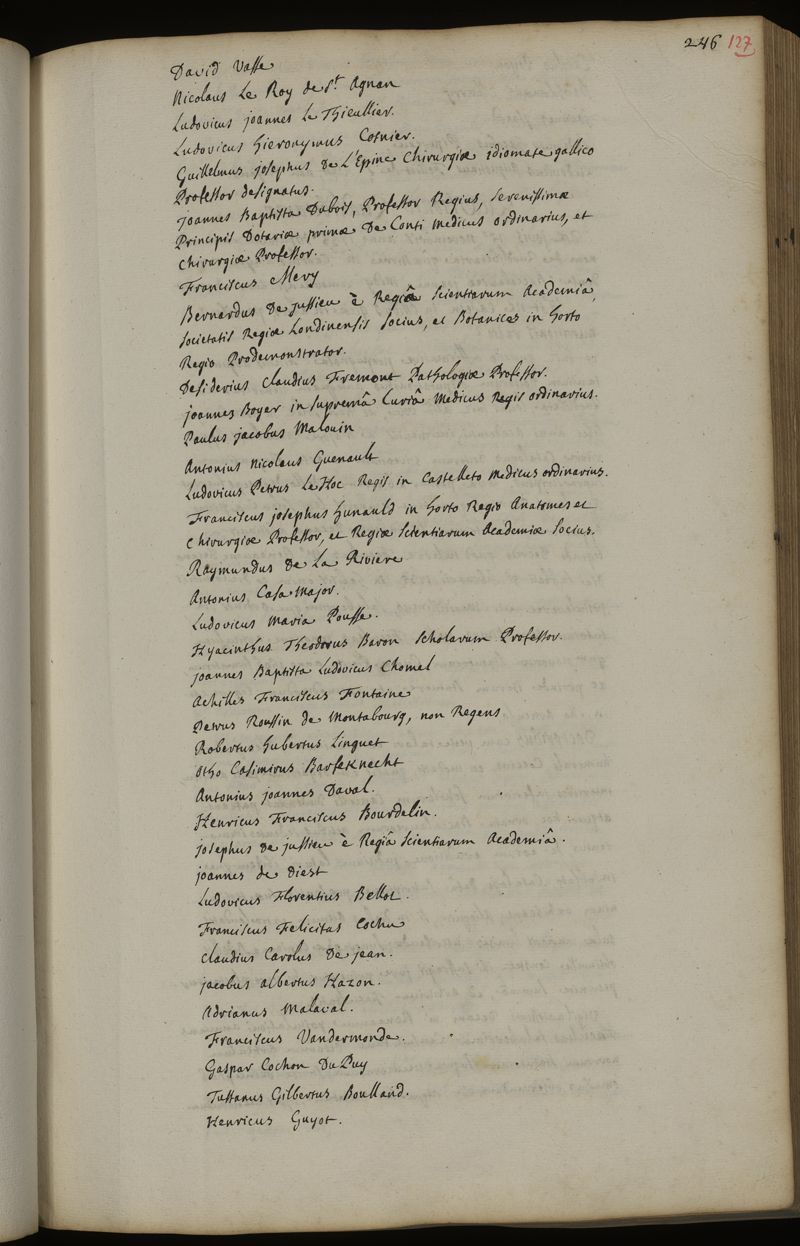 246 127
David Vasse
Nicolaus Le Roy de St. Agnan
Ludovicus joannes Le Thieullier.
Ludovicus Hieronymus Cosnier.
Guillelmus josephus De L'Epine Chirurgiæ idiomate gallico
Professor designatus.
Joannes Baptista Dubois, Professor Regius, serenissimæ
Principis Dotariæ primæ De Conti Medicus ordinarius, et
Chirurgiæ Professor.
Franciscus Mery
Bernardus De jussieu è Regiâ scientiarum Academiâ,
societatis Regiæ Londinensis socius, et Botanices in horto
Regio Prodemonstrator.
Desiderius Claudius Fremont Pathologiæ Professor.
joannes Boyer in supremâ Curiâ Medicus Regis ordinarius.
Paulus jacobus Malouin
Antonius Nicolaus Guenault
Ludovicus Petrus LeHoc Regis in Castelleto Medicus ordinarius.
Franciscus josephus hunauld in horto Regio Anatomes et
Chirurgiæ Professor, et Regiæ scientiarum Academiæ socius.
Raymundus De La Riviere
Antonius Casamajor.
Ludovicus Maria Pousse.
Hyacinthus Theodorus Baron scholarum Professor.
joannes Baptista Ludovicus Chomel
Achilles Franciscus Fontaine
Petrus Roussin de Montabourg, non Regens
Robertus hubertus Linguet
Otho Casimirus Barfeknecht
Antonius joannes Daval.
Henricus Franciscus Bourdelin.
josephus De jussieu è Regiâ scientiarum Academiâ.
joannes de Diest
Ludovicus Florentius Bellot.
Franciscus Felicitas Cochu
Claudius Carolus De jean.
jacobus albertus Hazon.
Adrianus Malaval.
Franciscus Vandermonde.
Gaspar Cochon DuPuy
Tussanus Gilbertus Boulland.
Henricus Guyot.